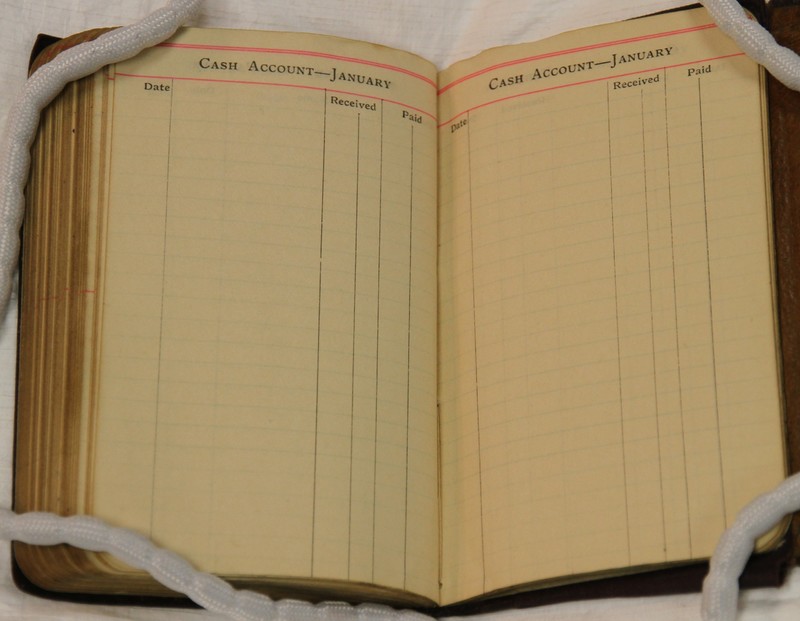 CASH ACCOUNT—JANUARY
Date Received Paid
CASH ACCOUNT—JANUARY
Date Received Paid